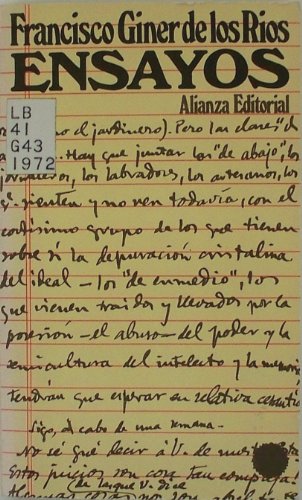 Francisco Giner de los Rios
ENSAYOS
Alianza Editorial
LB
41
G43
1972
no el jardinero). Pero las clases "de
Hay que juntar los "de abajo", los
jornaleros, los labradores, los artesanos, los
q. sienten y no ven todavía, con el
cortísimo grupo de los que tienen
sobre sí la depuración cristalina
del ideal — los "de enmedio", los
que vienen traidos y llevados por la
posesión — el abuso — del poder y la
semicultura del intelecto y la memoria
tendrán que esperar en relativa
Sigo, al cabo de una semana.
No sé qué decir á V. de
Estos juicios son cosa tan
de lo que V. dice